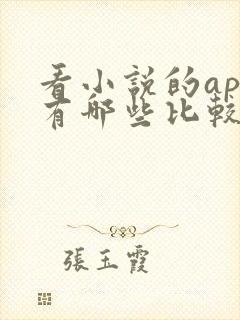 看小説的ap
有哪些比較
張玉霞